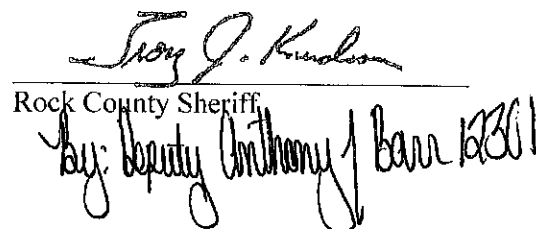 Troy J. Knudson
Rock County Sheriff
By: Deputy Anthony J Barr 12301